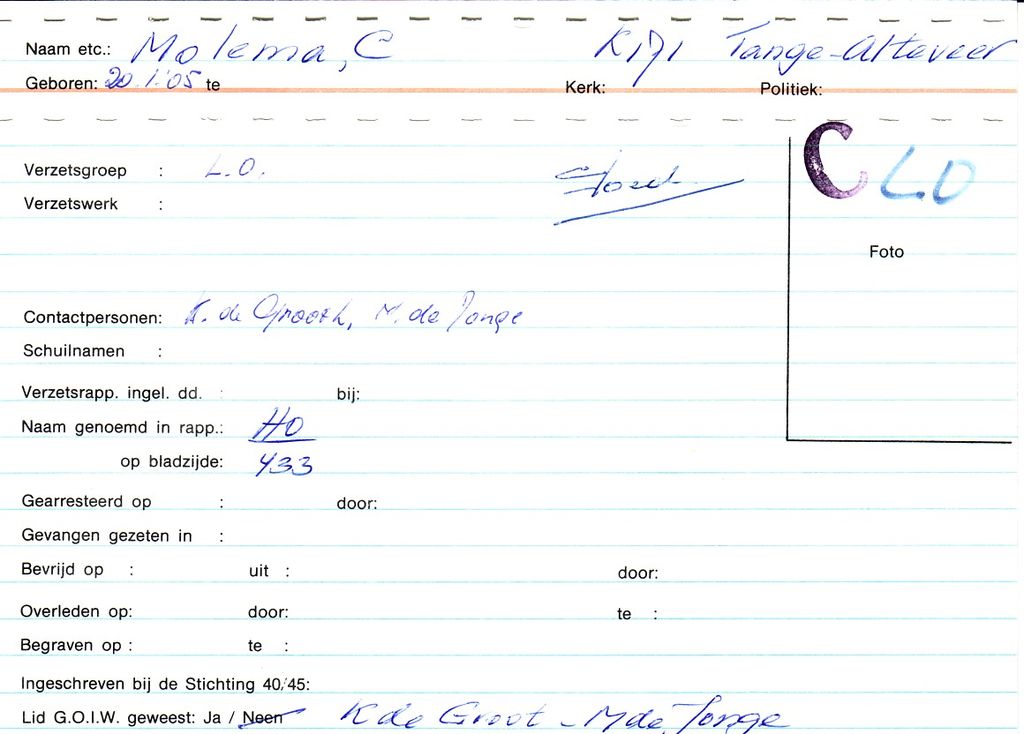 Naam etc.: Molema, C Tange-Alteveer
Geboren: 20.1.'05 te Kerk: Politiek:
C LO
Verzetsgroep : L.O.
Verzetswerk :
Foto
Contactpersonen: K. de Grooth, M. de Jonge
Schuilnamen :
Verzetsrapp. ingel. dd. : bij:
Naam genoemd in rapp.: HO
op bladzijde: 433
Gearresteerd op : door:
Gevangen gezeten in :
Bevrijd op : uit : door:
Overleden op: door: te :
Begraven op : te :
Ingeschreven bij de Stichting 40/45:
Lid G.O.I.W. geweest: Ja / Neen K de Groot - M de Jonge